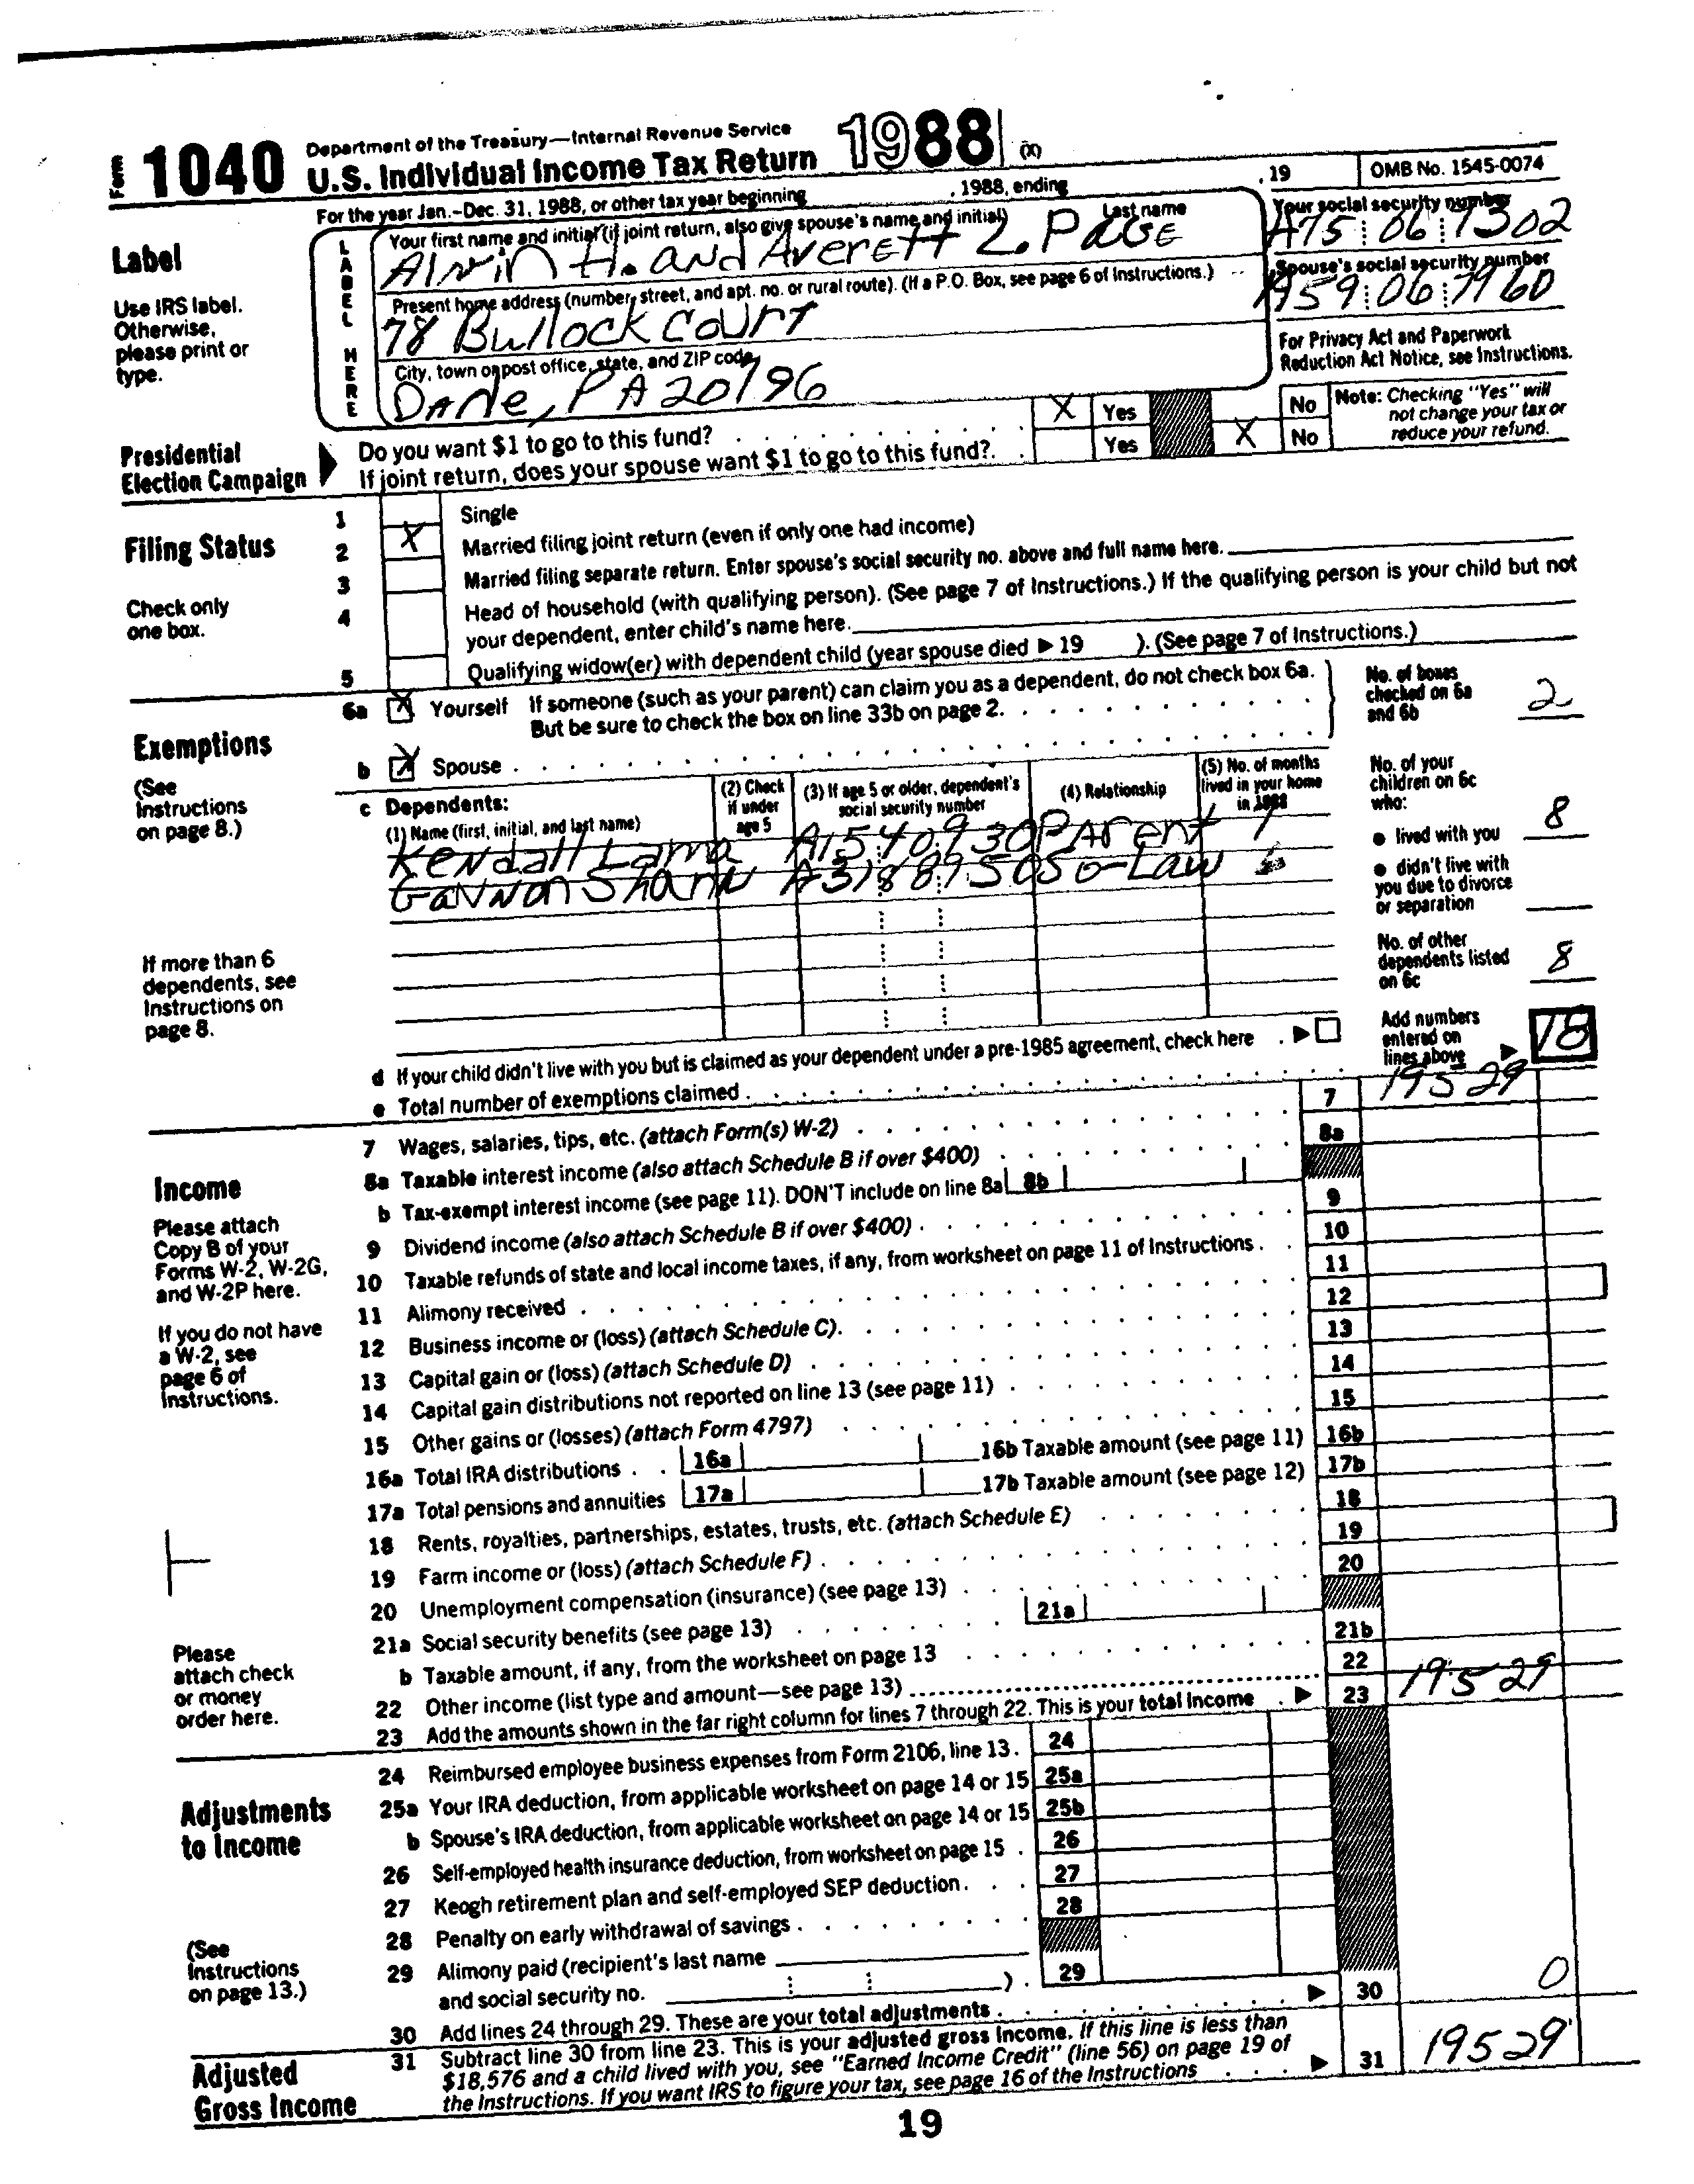 Form 1040 Department of the Treasury—Internal Revenue Service
U.S. Individual Income Tax Return 1988 (X)
For the year Jan.-Dec. 31, 1988, or other tax year beginning , 1988, ending , 19 OMB No. 1545-0074
Label
Use IRS label.
Otherwise,
please print or
type.
LABEL HERE
Your first name and initial (if joint return, also give spouse's name and initial) Last name
Alvin H. and Averett L. Page
Your social security number
A75 06 7302
Present home address (number, street, and apt. no. or rural route). (If a P.O. Box, see page 6 of Instructions.)
78 Bullock Court
Spouse's social security number
A59 06 7960
City, town or post office, state, and ZIP code
Dane, PA 20196
For Privacy Act and Paperwork
Reduction Act Notice, see Instructions.
Presidential
Election Campaign
Do you want $1 to go to this fund? X Yes No
If joint return, does your spouse want $1 to go to this fund? Yes X No
Note: Checking "Yes" will
not change your tax or
reduce your refund.
Filing Status
Check only
one box.
1 Single
2 X Married filing joint return (even if only one had income)
3 Married filing separate return. Enter spouse's social security no. above and full name here.
4 Head of household (with qualifying person). (See page 7 of Instructions.) If the qualifying person is your child but not
your dependent, enter child's name here.
5 Qualifying widow(er) with dependent child (year spouse died ▶ 19 ). (See page 7 of Instructions.)
Exemptions
(See
Instructions
on page 8.)
6a X Yourself If someone (such as your parent) can claim you as a dependent, do not check box 6a.
But be sure to check the box on line 33b on page 2.
b X Spouse
No. of boxes
checked on 6a
and 6b 2
c Dependents:
(1) Name (first, initial, and last name)
(2) Check
if under
age 5
(3) If age 5 or older, dependent's
social security number
(4) Relationship
(5) No. of months
lived in your home
in 1988
Kendall Lamb A15 40 930 Parent 1
Gannon Shann A31 88 950 So-Law
No. of your
children on 6c
who:
● lived with you 8
● didn't live with
you due to divorce
or separation
No. of other
dependents listed
on 6c 8
If more than 6
dependents, see
Instructions on
page 8.
d If your child didn't live with you but is claimed as your dependent under a pre-1985 agreement, check here ▶
e Total number of exemptions claimed
Add numbers
entered on
lines above ▶ 18
Income
Please attach
Copy B of your
Forms W-2, W-2G,
and W-2P here.
If you do not have
a W-2, see
page 6 of
Instructions.
Please
attach check
or money
order here.
7 Wages, salaries, tips, etc. (attach Form(s) W-2) 7 19529
8a Taxable interest income (also attach Schedule B if over $400) 8a
b Tax-exempt interest income (see page 11). DON'T include on line 8a 8b
9 Dividend income (also attach Schedule B if over $400) 9
10 Taxable refunds of state and local income taxes, if any, from worksheet on page 11 of Instructions 10
11 Alimony received 11
12 Business income or (loss) (attach Schedule C) 12
13 Capital gain or (loss) (attach Schedule D) 13
14 Capital gain distributions not reported on line 13 (see page 11) 14
15 Other gains or (losses) (attach Form 4797) 15
16a Total IRA distributions 16a 16b Taxable amount (see page 11) 16b
17a Total pensions and annuities 17a 17b Taxable amount (see page 12) 17b
18 Rents, royalties, partnerships, estates, trusts, etc. (attach Schedule E) 18
19 Farm income or (loss) (attach Schedule F) 19
20 Unemployment compensation (insurance) (see page 13) 20
21a Social security benefits (see page 13) 21a
b Taxable amount, if any, from the worksheet on page 13 21b
22 Other income (list type and amount—see page 13) 22
23 Add the amounts shown in the far right column for lines 7 through 22. This is your total income ▶ 23 19529
Adjustments
to Income
(See
Instructions
on page 13.)
24 Reimbursed employee business expenses from Form 2106, line 13 24
25a Your IRA deduction, from applicable worksheet on page 14 or 15 25a
b Spouse's IRA deduction, from applicable worksheet on page 14 or 15 25b
26 Self-employed health insurance deduction, from worksheet on page 15 26
27 Keogh retirement plan and self-employed SEP deduction 27
28 Penalty on early withdrawal of savings 28
29 Alimony paid (recipient's last name
and social security no. ) 29
30 Add lines 24 through 29. These are your total adjustments ▶ 30 0
Adjusted
Gross Income
31 Subtract line 30 from line 23. This is your adjusted gross income. If this line is less than
$18,576 and a child lived with you, see "Earned Income Credit" (line 56) on page 19 of
the Instructions. If you want IRS to figure your tax, see page 16 of the Instructions ▶ 31 19529
19